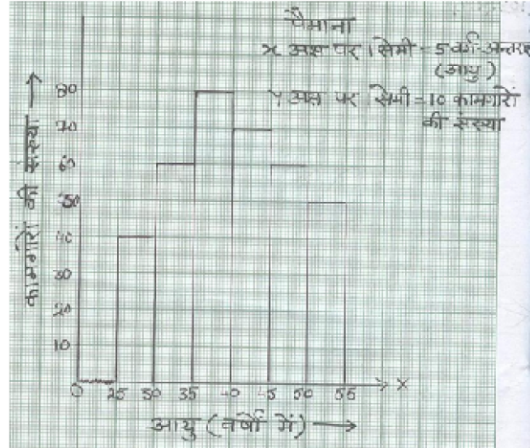 पैमाना
x अक्ष पर 1 सेमी = 5 वर्ग-अन्तराल
(आयु)
y अक्ष पर 1 सेमी = 10 कामगारों
की संख्या
कामगारों की संख्या
80
70
60
50
40
30
20
10
0 25 30 35 40 45 50 55 X
आयु (वर्षों में)